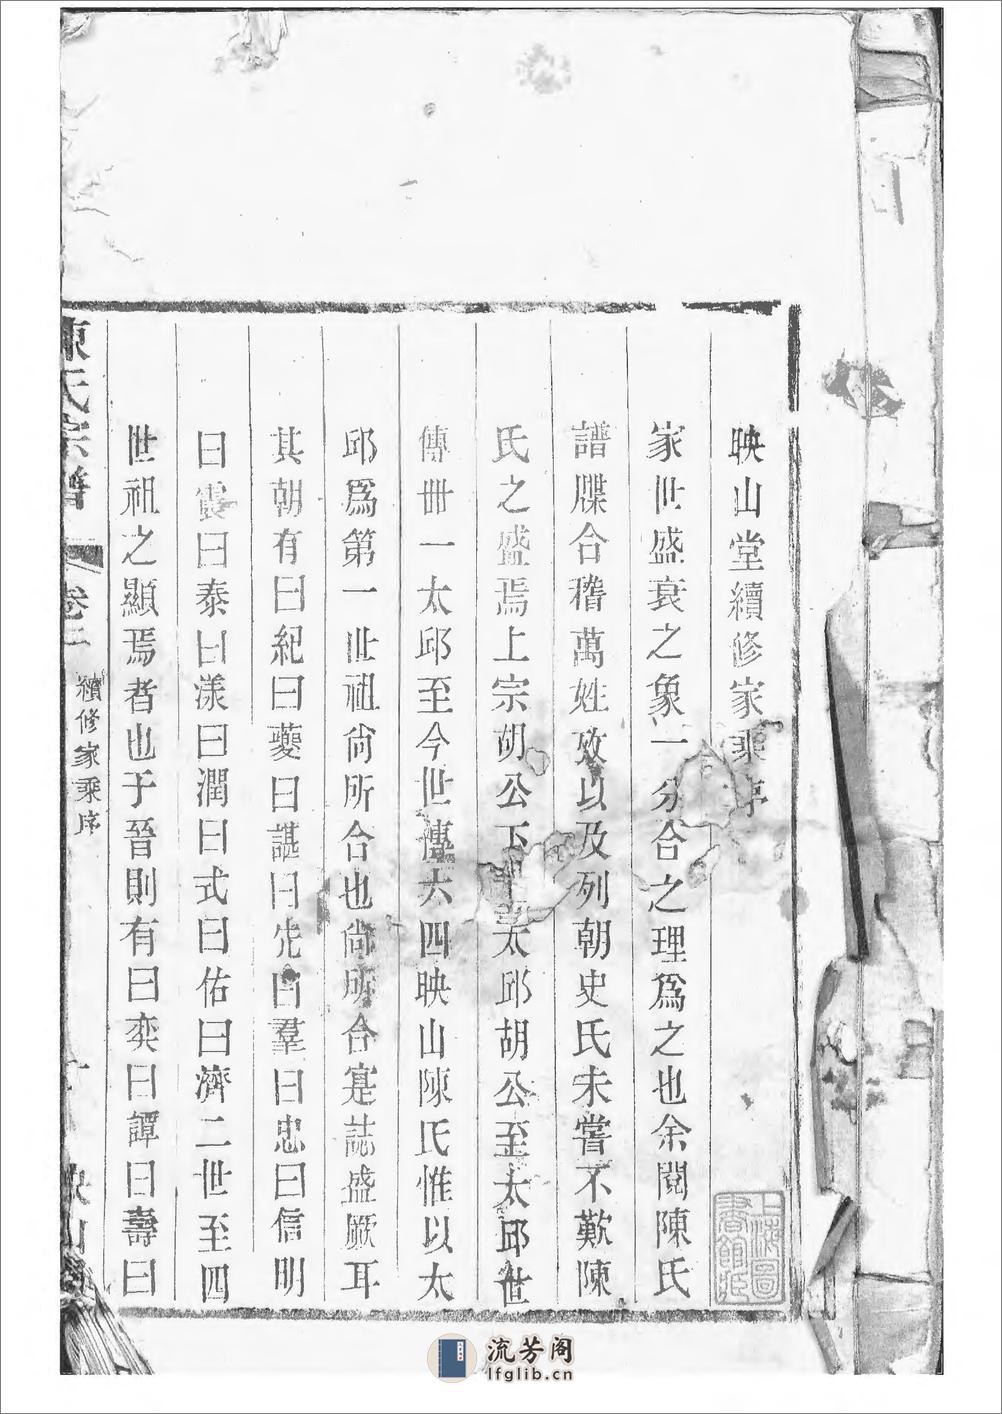 映山堂續修家乘序
家世盛衰之象一分合之理爲之也余閱陳氏
譜牒合稽萬姓攷以及列朝史氏未嘗不歎陳
氏之盛焉上宗胡公下 太邱胡公至太邱世
傳卌一太邱至今世傳六四映山陳氏惟以太
邱爲第一世祖尙所合也尙所合寔誌盛厥耳
其朝有曰紀曰夔曰諶曰先曰羣曰忠曰信明
曰 曰泰曰漾曰潤曰式曰佑曰濟二世至四
世祖之顯焉者也于晉則有曰奕曰譚曰壽曰
陳氏宗譜
卷二
續修家乘序
映山
上海圖書館藏
流芳阁
lfglib.cn